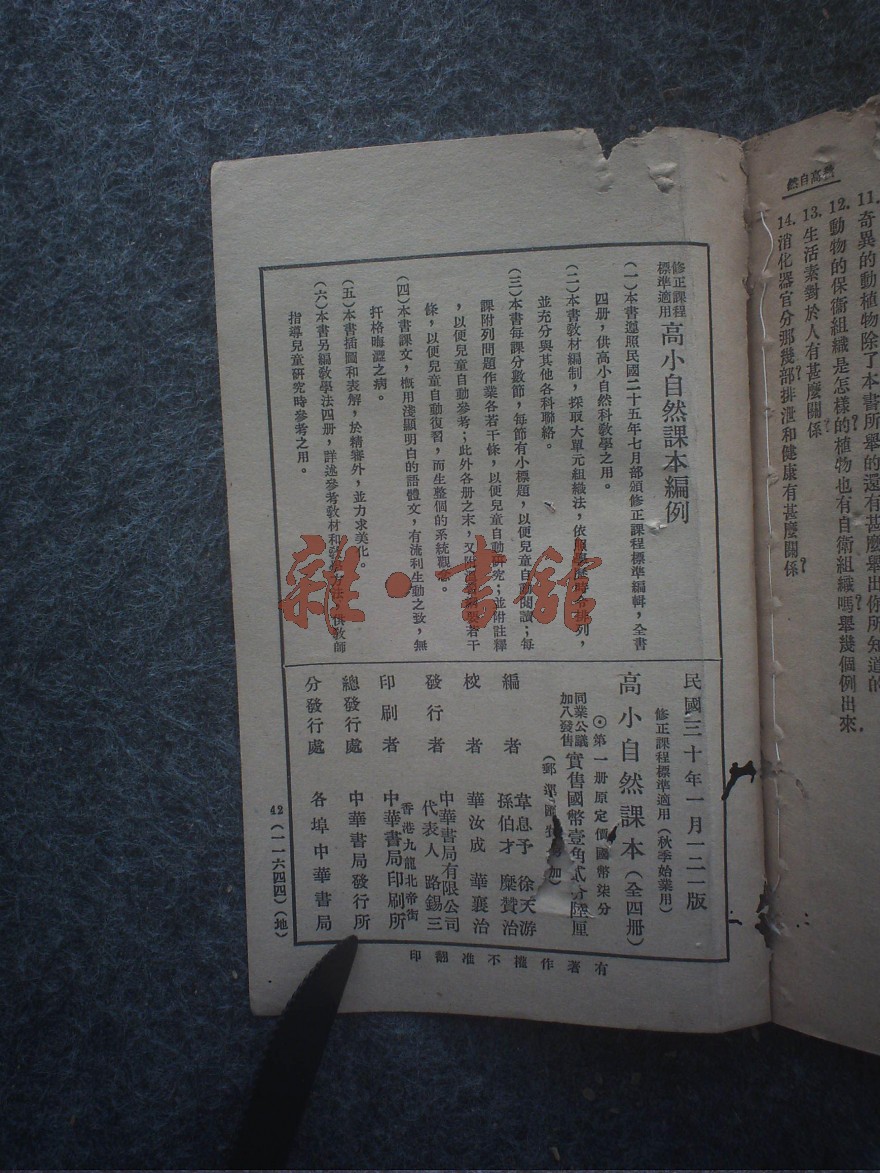 修正課程標準適用 高小自然課本編例
(一)本書遵照民國二十五年七月部頒修正課程標準編輯,全書
四册,供高小自然科教學之用。
(二)本書教材編制,採取大單元組織法,依照 排列,
並充分與其他各科聯絡。
(三)本書每課分數節,每節有小標題,以便兒童自動閱讀;每
課附列問題作業各若干條,以便兒童自動研究;並附註釋
,以便兒童自動參考;此外各册之末,又附 若干
條,以便兒童自動復習,而生整個的系統觀念。
(四)本書課文,概用淺顯明白的語體文,有流利生動之致,無
扞格晦澀之病。
(五)本書插圖和表解,於精審外,並力求美化。
(六)本書另編教學法四册,詳述參考教材和教學方法,供教師
指導兒童研究時參考之用。
民國三十年一月一二一版
修正課程標準適用(秋季始業用)
高小自然課本(全四册)
⊙第一册原定價國幣柒分
同業公議加入發售 實售國幣壹角貳分陸厘
(郵 加)
編者 韋息予 徐天游
孫伯才 糜贊治
校者 華汝成 華襄治
發行者 中華書局有限公司
代表人 路錫三
印刷者 香港九龍北帝街
中華書局印刷所
總發行處 中華書局發行所
分發行處 各埠中華書局
42(一一六四四)(地)
有著作權不准翻印
高自然
11.奇異的動植物除了本書所舉的還有甚麼舉出你所知道的
12.動物的保衛組織是怎樣的?植物也有自衛組織嗎?舉幾個例出來.
13.生活素對於人有甚麼關係?
14.消化器官分那幾部?排泄和健康有甚麼關係?
雜·書館